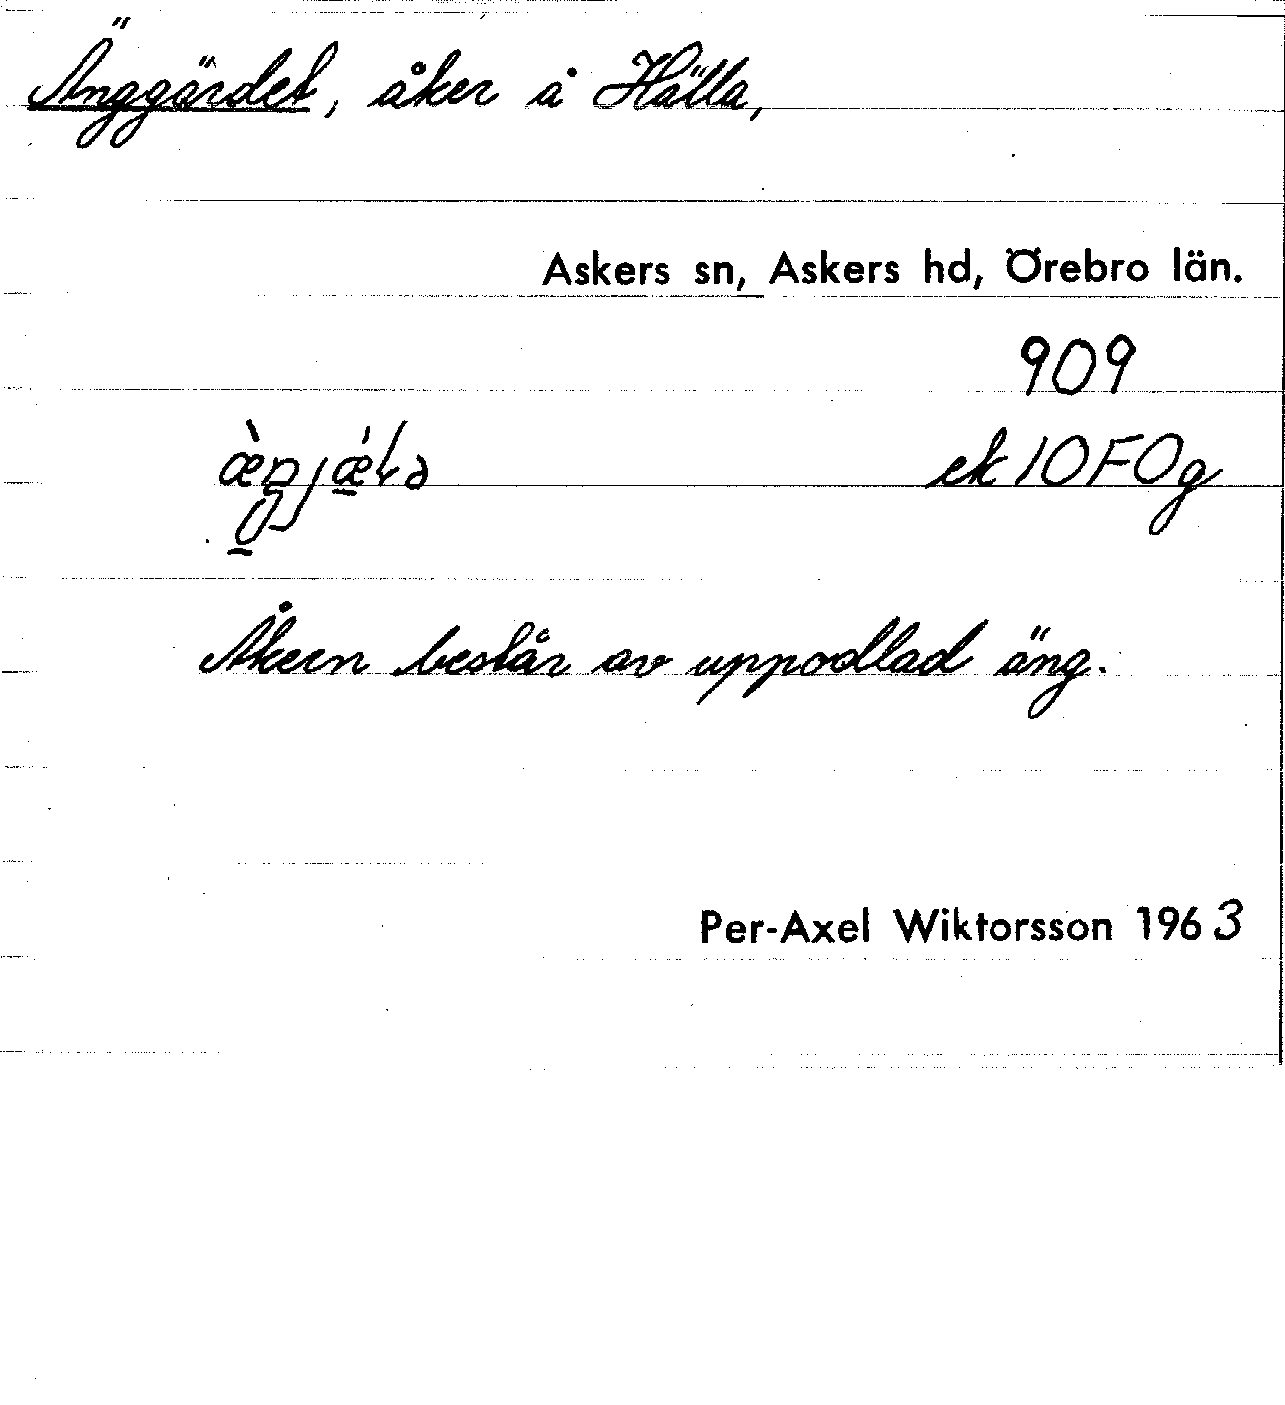 Änggärdet, åker å Hälla,
Askers sn, Askers hd, Örebro län.
909
ek 10 F0g
Åkern består av uppodlad äng.
Per-Axel Wiktorsson 1963